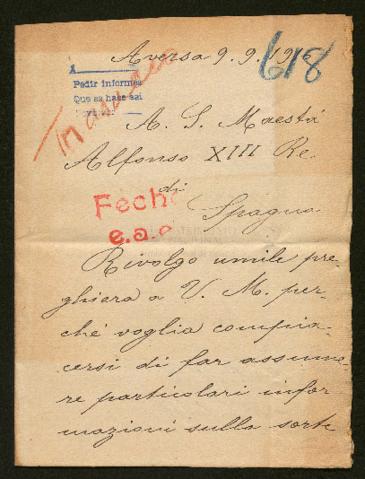 Aversa 9. 9. 19
618
A
Pedir informes
Que se hace así
A. S. Maestà
Alfonso XIII Re
di
Fecho
e.a.e
Spagna
Rivolgo umile pre-
ghiera a V. M. per-
ché voglia compia-
cersi di far assume-
re particolari infor
mazioni sulla sorte